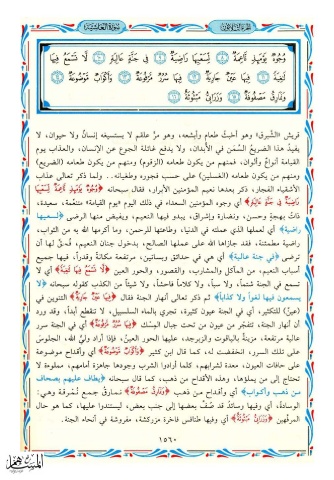 سُورَةُ الغَاشِيَة
وُجُوهٌ يَوْمَئِذٍ نَاعِمَةٌ ۝ لِسَعْيِهَا رَاضِيَةٌ ۝ فِي جَنَّةٍ عَالِيَةٍ ۝ لَا تَسْمَعُ فِيهَا
لَاغِيَةً ۝ فِيهَا عَيْنٌ جَارِيَةٌ ۝ فِيهَا سُرُرٌ مَرْفُوعَةٌ ۝ وَأَكْوَابٌ مَوْضُوعَةٌ ۝
وَنَمَارِقُ مَصْفُوفَةٌ ۝ وَزَرَابِيُّ مَبْثُوثَةٌ ۝
قريش «الشِّبرق» وهو أخبثُ طعام وأبشعه، وهو مرٌّ علقم لا يستسيغه إنسانٌ ولا حيوان، لا
يفيدُ هذا الضريعُ السِّمَن في الأبدان، ولا يدفع غائلة الجوع عن الإنسان، والعذاب يوم
القيامة أنواعٌ وألوان، فمنهم من يكون طعامه (الزقوم) ومنهم من يكون طعامه (الضريع)
ومنهم من يكون طعامه (الغسلين) على حسب فجوره وطغيانه.. ولما ذكر تعالى عذاب
الأشقياء الفجار، ذكر بعدها نعيم المؤمنين الأبرار، فقال سبحانه ﴿وُجُوهٌ يَوْمَئِذٍ نَاعِمَةٌ لِسَعْيِهَا
رَاضِيَةٌ فِي جَنَّةٍ عَالِيَةٍ﴾ أي وجوه المؤمنين السعداء في ذلك اليوم «يوم القيامة» متنعِّمة، سعيدة،
ذاتُ بهجةٍ وحسن، ونضارةٍ وإشراق، يبدو فيها النعيم، ويفيض منها الرضى ﴿لسعيها
راضية﴾ أي لعملها الذي عملته في الدنيا، وطاعتها للرحمن، وما أكرمها الله به من الثواب،
راضية مطمئنة، فقد جازاها الله على عملها الصالح، بدخول جنان النعيم، فحقَّ لها أن
ترضى ﴿في جنة عالية﴾ أي هي في حدائق وبساتين، مرتفعة مكاناً وقدراً، فيها جميع
أسباب النعيم، من المآكل والمشارب، والقصور، والحور العين ﴿لَّا تَسْمَعُ فِيهَا لَاغِيَةً﴾ أي لا
تسمع في الجنة شتماً، ولا سباً، ولا كلاماً فاحشاً، ولا شيئاً من الكذب كقوله سبحانه ﴿لا
يسمعون فيها لغواً ولا كذاباً﴾ ثم ذكر تعالى أنهار الجنة فقال ﴿فِيهَا عَيْنٌ جَارِيَةٌ﴾ التنوين في
(عينٌ) للتكثير، أي في الجنة عيون كثيرة، تجري بالماء السلسبيل، لا تنقطع أبداً، وقد ورد
أن أنهار الجنة، تتفجَّر من عيون من تحت جبال المِسْك ﴿فِيهَا سُرُرٌ مَرْفُوعَةٌ﴾ أي في الجنة سرر
عالية مرتفعة، مزينةٌ بالياقوت والزبرجد، عليها الحور العينُ، فإذا أراد وليُّ الله، الجلوسَ
على تلك السرر، انخفضت له، كما قال ابن كثير ﴿وَأَكْوَابٌ مَوْضُوعَةٌ﴾ أي وأقداح موضوعة
على حافات العيون، معدة لشرابهم، كلما أرادوا الشرب وجودها جاهزة أمامهم، مملوءة لا
تحتاج إلى من يملؤها، وهذه الأقداح من ذهب، كما قال سبحانه ﴿يطاف عليهم بصحاف
من ذهب وأكواب﴾ أي وأقداح من ذهب ﴿وَنَمَارِقُ مَصْفُوفَةٌ﴾ نمارقُ جمع نُمرقة وهي:
الوسادةُ، أي وفيها وسائدُ قد صُفَّ بعضها إلى جنب بعض، ليستندوا عليها، كما هو حال
المرفَّهين ﴿وَزَرَابِيُّ مَبْثُوثَةٌ﴾ أي وفيها طنافس فاخرة مزركشة، مفروشة في أنحاء الجنة.
١٥٦٠